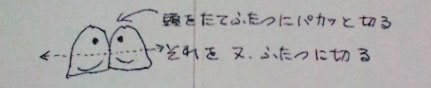 頭をたてふたつにパカッと切る
それを又、ふたつに切る